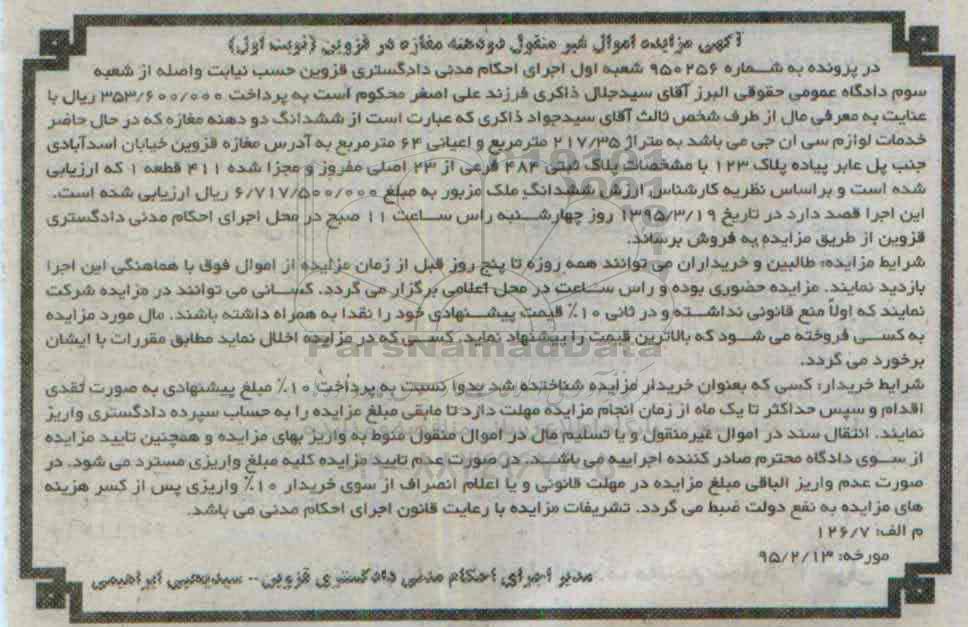 آگهی مزایده اموال غیر منقول دودهنه مغازه در قزوین (نوبت اول)
در پرونده به شماره ۹۵۰۲۵۶ شعبه اول اجرای احکام مدنی دادگستری قزوین حسب نیابت واصله از شعبه
سوم دادگاه عمومی حقوقی البرز آقای سیدجلال ذاکری فرزند علی اصغر محکوم است به پرداخت ۳۵۳/۶۰۰/۰۰۰ ریال با
عنایت به معرفی مال از طرف شخص ثالث آقای سیدجواد ذاکری که عبارت است از ششدانگ دو دهنه مغازه که در حال حاضر
خدمات لوازم سی ان جی می باشد به متراژ ۲۱۷/۳۵ مترمربع و اعیانی ۶۴ مترمربع به آدرس مغازه قزوین خیابان اسدآبادی
جنب پل عابر پیاده پلاک ۱۲۳ با مشخصات پلاک ثبتی ۴۸۴ فرعی از ۲۳ اصلی مفروز و مجزا شده ۴۱۱ قطعه ۱ که ارزیابی
شده است و براساس نظریه کارشناس ارزش ششدانگ ملک مزبور به مبلغ ۶/۷۱۷/۵۰۰/۰۰۰ ریال ارزیابی شده است.
این اجرا قصد دارد در تاریخ ۱۳۹۵/۳/۱۹ روز چهارشنبه راس ساعت ۱۱ صبح در محل اجرای احکام مدنی دادگستری
قزوین از طریق مزایده به فروش برساند.
شرایط مزایده: طالبین و خریداران می توانند همه روزه تا پنج روز قبل از زمان مزایده از اموال فوق با هماهنگی این اجرا
بازدید نمایند. مزایده حضوری بوده و راس ساعت در محل اعلامی برگزار می گردد. کسانی می توانند در مزایده شرکت
نمایند که اولاً منع قانونی نداشته و در ثانی ۱۰٪ قیمت پیشنهادی خود را نقدا به همراه داشته باشند. مال مورد مزایده
به کسی فروخته می شود که بالاترین قیمت را پیشنهاد نماید. کسی که در مزایده اخلال نماید مطابق مقررات با ایشان
برخورد می گردد.
شرایط خریدار: کسی که بعنوان خریدار مزایده شناخته شد بدوا نسبت به پرداخت ۱۰٪ مبلغ پیشنهادی به صورت نقدی
اقدام و سپس حداکثر تا یک ماه از زمان انجام مزایده مهلت دارد تا مابقی مبلغ مزایده را به حساب سپرده دادگستری واریز
نمایند. انتقال سند در اموال غیرمنقول و یا تسلیم مال در اموال منقول منوط به واریز بهای مزایده و همچنین تایید مزایده
از سوی دادگاه محترم صادر کننده اجراییه می باشد. در صورت عدم تایید مزایده کلیه مبلغ واریزی مسترد می شود. در
صورت عدم واریز الباقی مبلغ مزایده در مهلت قانونی و یا اعلام انصراف از سوی خریدار ۱۰٪ واریزی پس از کسر هزینه
های مزایده به نفع دولت ضبط می گردد. تشریفات مزایده با رعایت قانون اجرای احکام مدنی می باشد.
م الف: ۱۲۶/۷
مورخه: ۹۵/۲/۱۳
مدیر اجرای احکام مدنی دادگستری قزوین -- سیدیحیی ابراهیمی
ParsNamadData